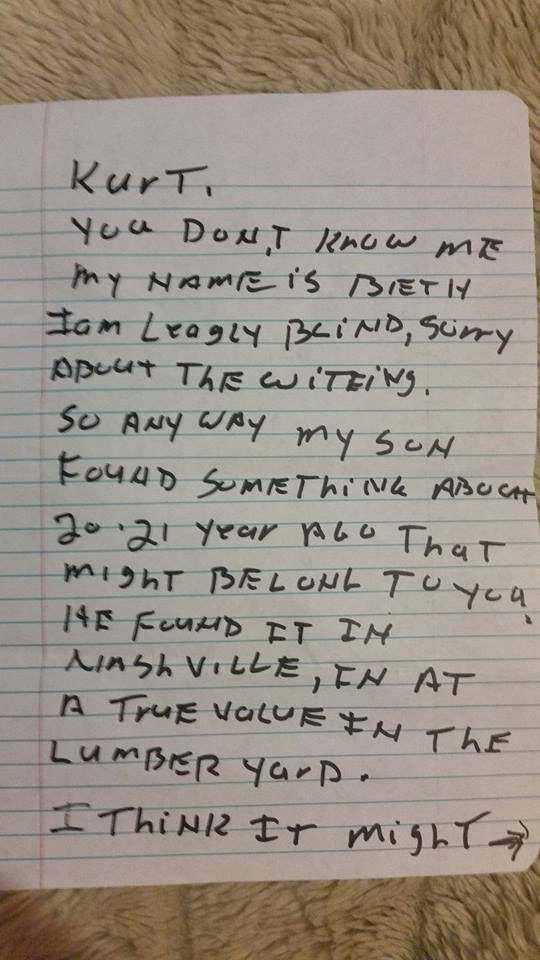 KurT,
YOU DON,T KNOW ME
MY NAME iS BETTY
I am LeagLy BLiND, Sorry
ABOUt THE WiTEiNg.
SO ANY WAY MY SON
FOUND SOMEThiNG ABOUt
20.21 year AGO ThaT
MighT BELONG TO YOU.
HE FOUND IT IN
NaShViLLE, IN AT
A TRUE VALUE IN THE
LUMBER YarD.
I ThiNK It MighT →